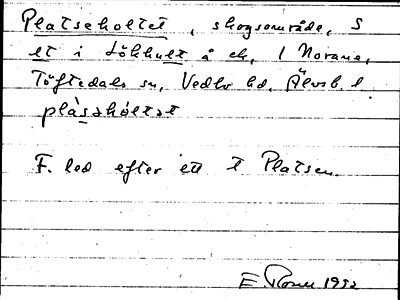 Platseholtet, skogsområde, S
et i Lökhult å ek. 1 Norane,
Töftedals sn, Vedbo hd. Älvsb. l.
plàsəhåltət
F. led efter ett t Platsen.
E 1952